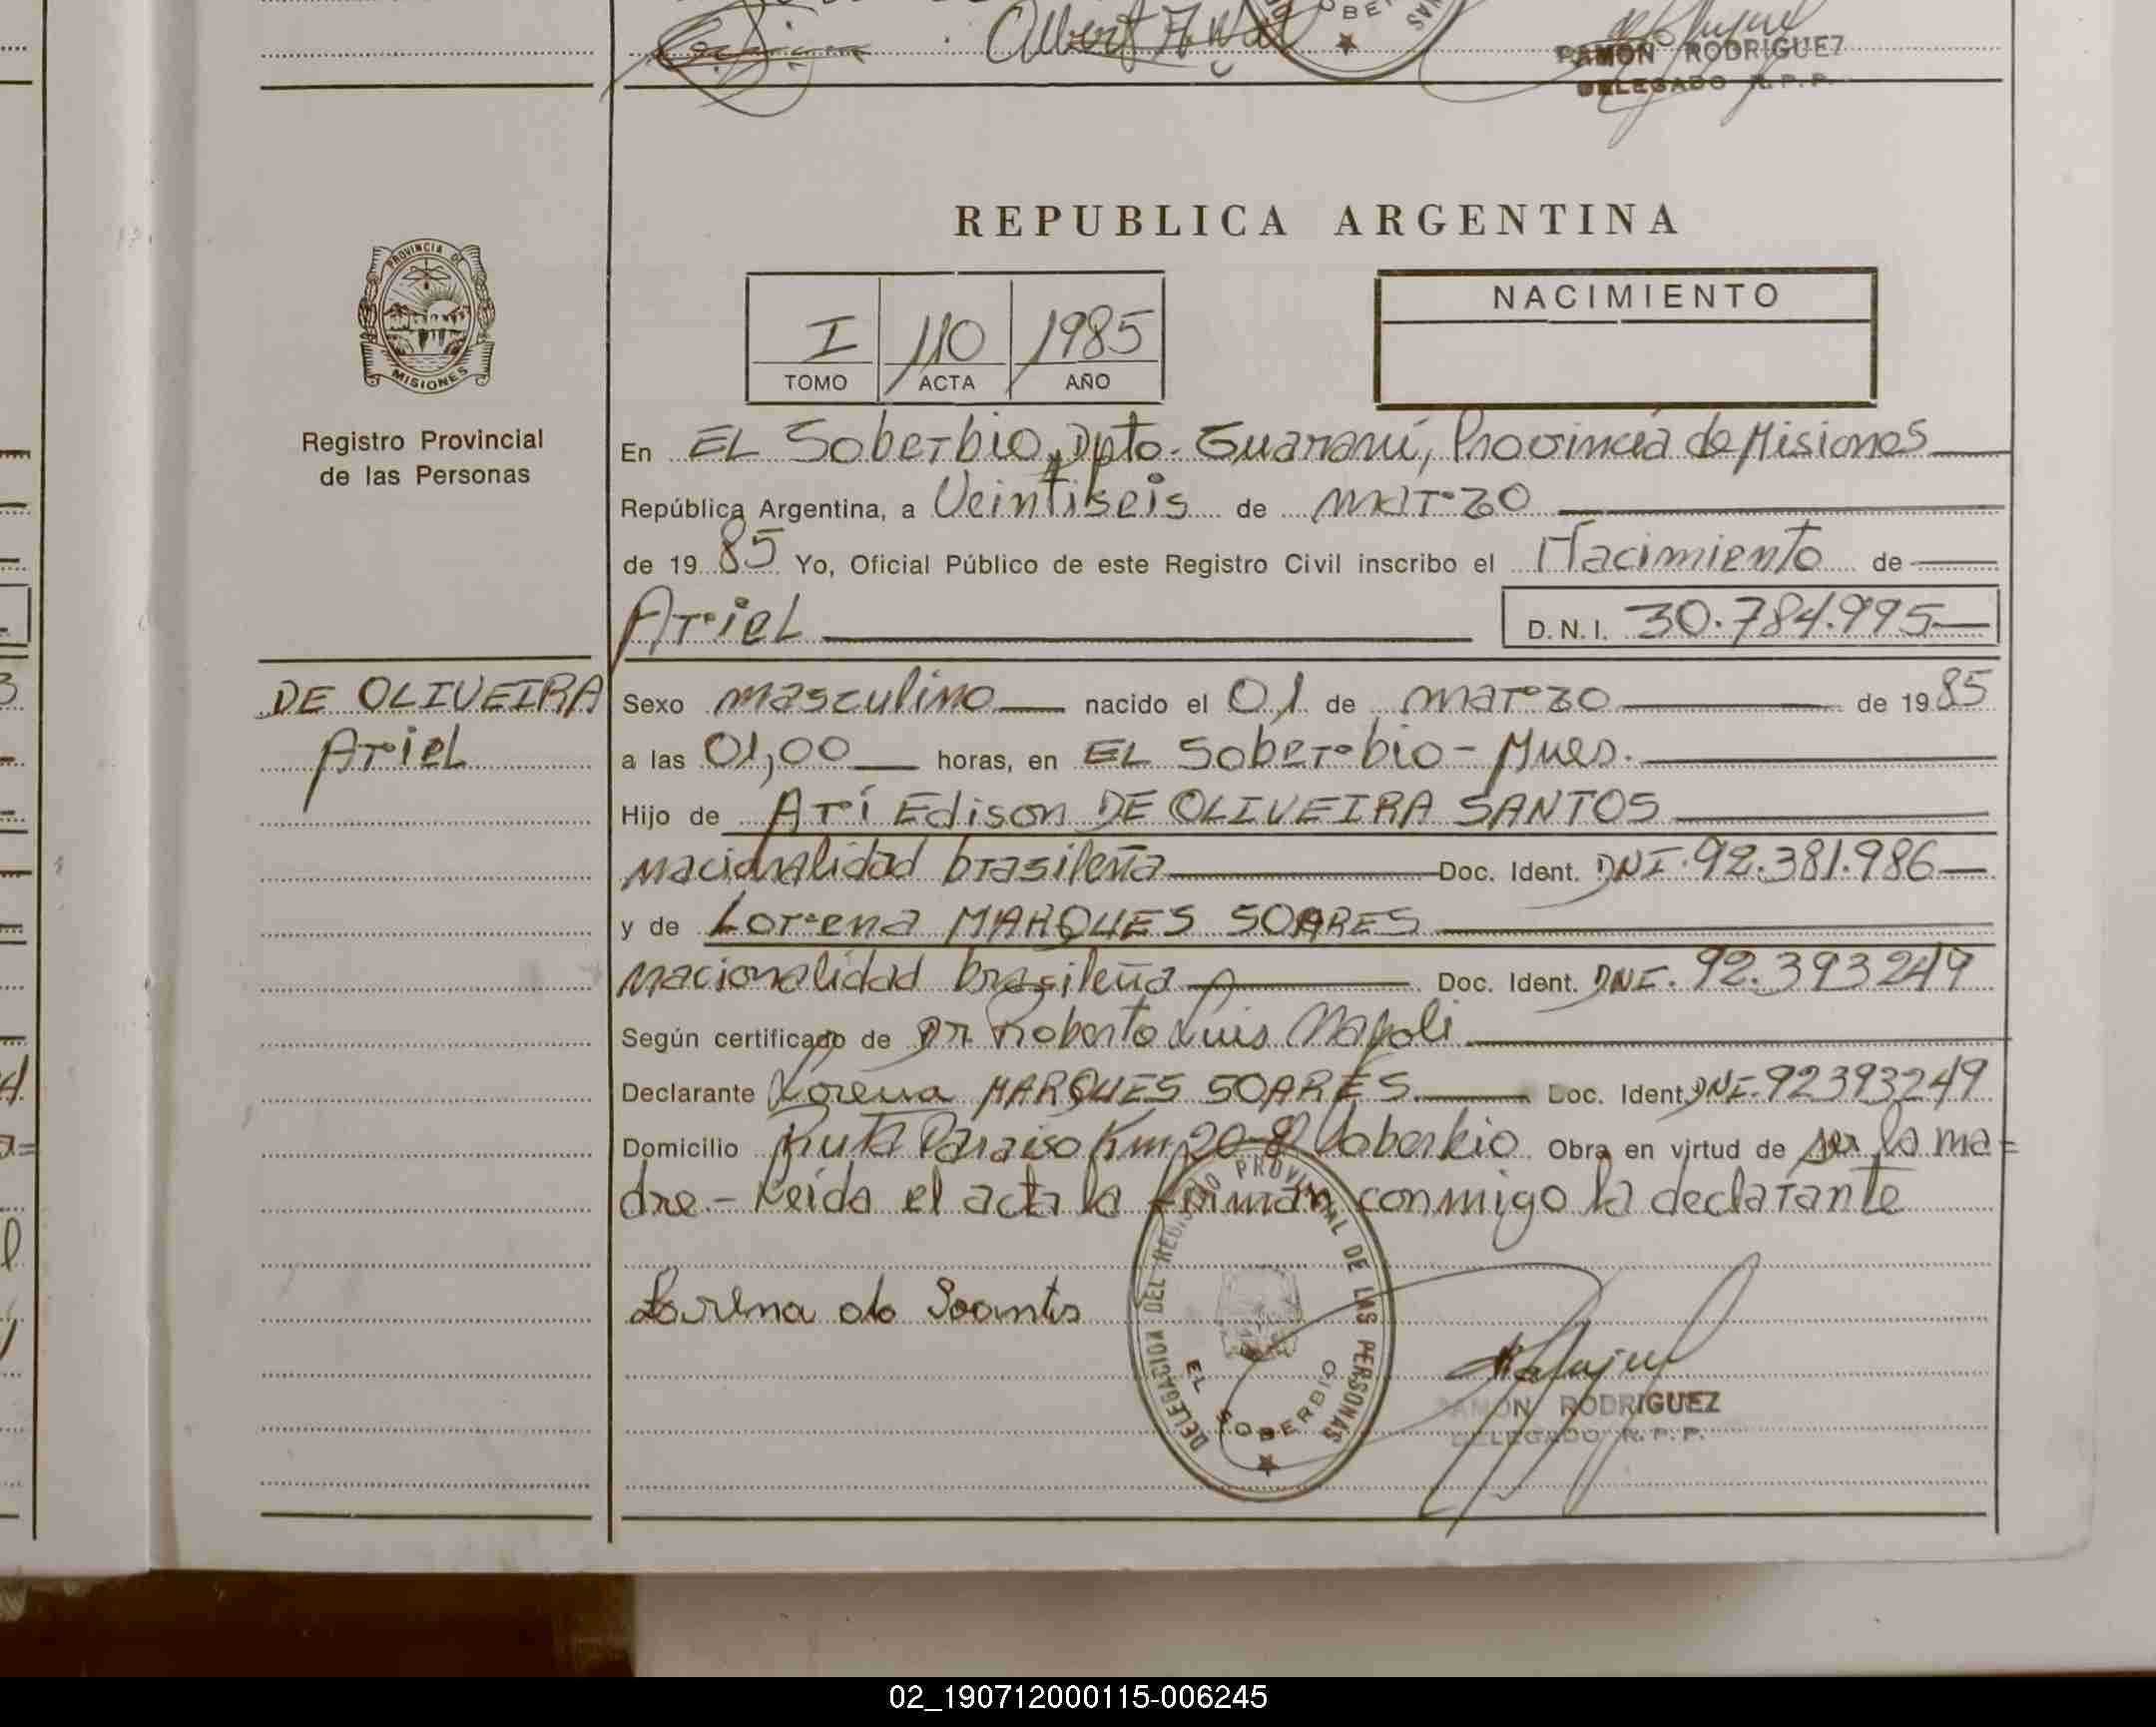 Albert A. Wal
OBE
RAMON RODRIGUEZ
DELEGADO R.P.P.
REPUBLICA ARGENTINA
PROVINCIA DE
MISIONES
Registro Provincial
de las Personas
I 110 1985
TOMO ACTA AÑO
NACIMIENTO
En EL Soberbio, Dpto. Guaraní, Provincia de Misiones
República Argentina, a Veintiseis de marzo
de 19 85 Yo, Oficial Público de este Registro Civil inscribo el Nacimiento de
Ariel D.N.I. 30.784.995
DE OLIVEIRA
Ariel
Sexo masculino nacido el 01 de marzo de 19 85
a las 01,00 horas, en EL Soberbio - Mnes.
Hijo de Arí Edison DE OLIVEIRA SANTOS
nacionalidad brasileña Doc. Ident. DNI. 92.381.986
y de Lorena MARQUES SOARES
nacionalidad brasileña Doc. Ident. DNI. 92.393249
Según certificado de Dr. Roberto Luis Napoli
Declarante Lorena MARQUES SOARES Doc. Ident DNI. 92393249
Domicilio Ruta Paraiso Km 20-El Soberbio Obra en virtud de ser la ma=
dre.- Leida el acta la firman conmigo la declarante
Lorena do Soantos
DELEGACION DEL REGISTRO PROVINCIAL DE LAS PERSONAS
EL SOBERBIO
RAMON RODRIGUEZ
DELEGADO R.P.P.
02_190712000115-006245